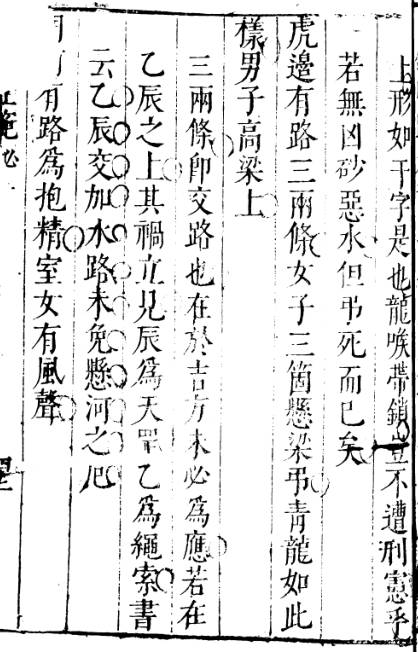 上形如干字是也龍喉帶鎖豈不遭刑憲乎
若無凶砂惡水但弔死而已矣
虎邊有路三兩條女子三箇懸梁弔青龍如此
樣男子高梁上
三兩條卽交路也在於吉方未必為應若在
乙辰之上其禍立見辰為天罡乙為繩索書
云乙辰交加水路未免懸河之厄
有路為抱精室女有風聲